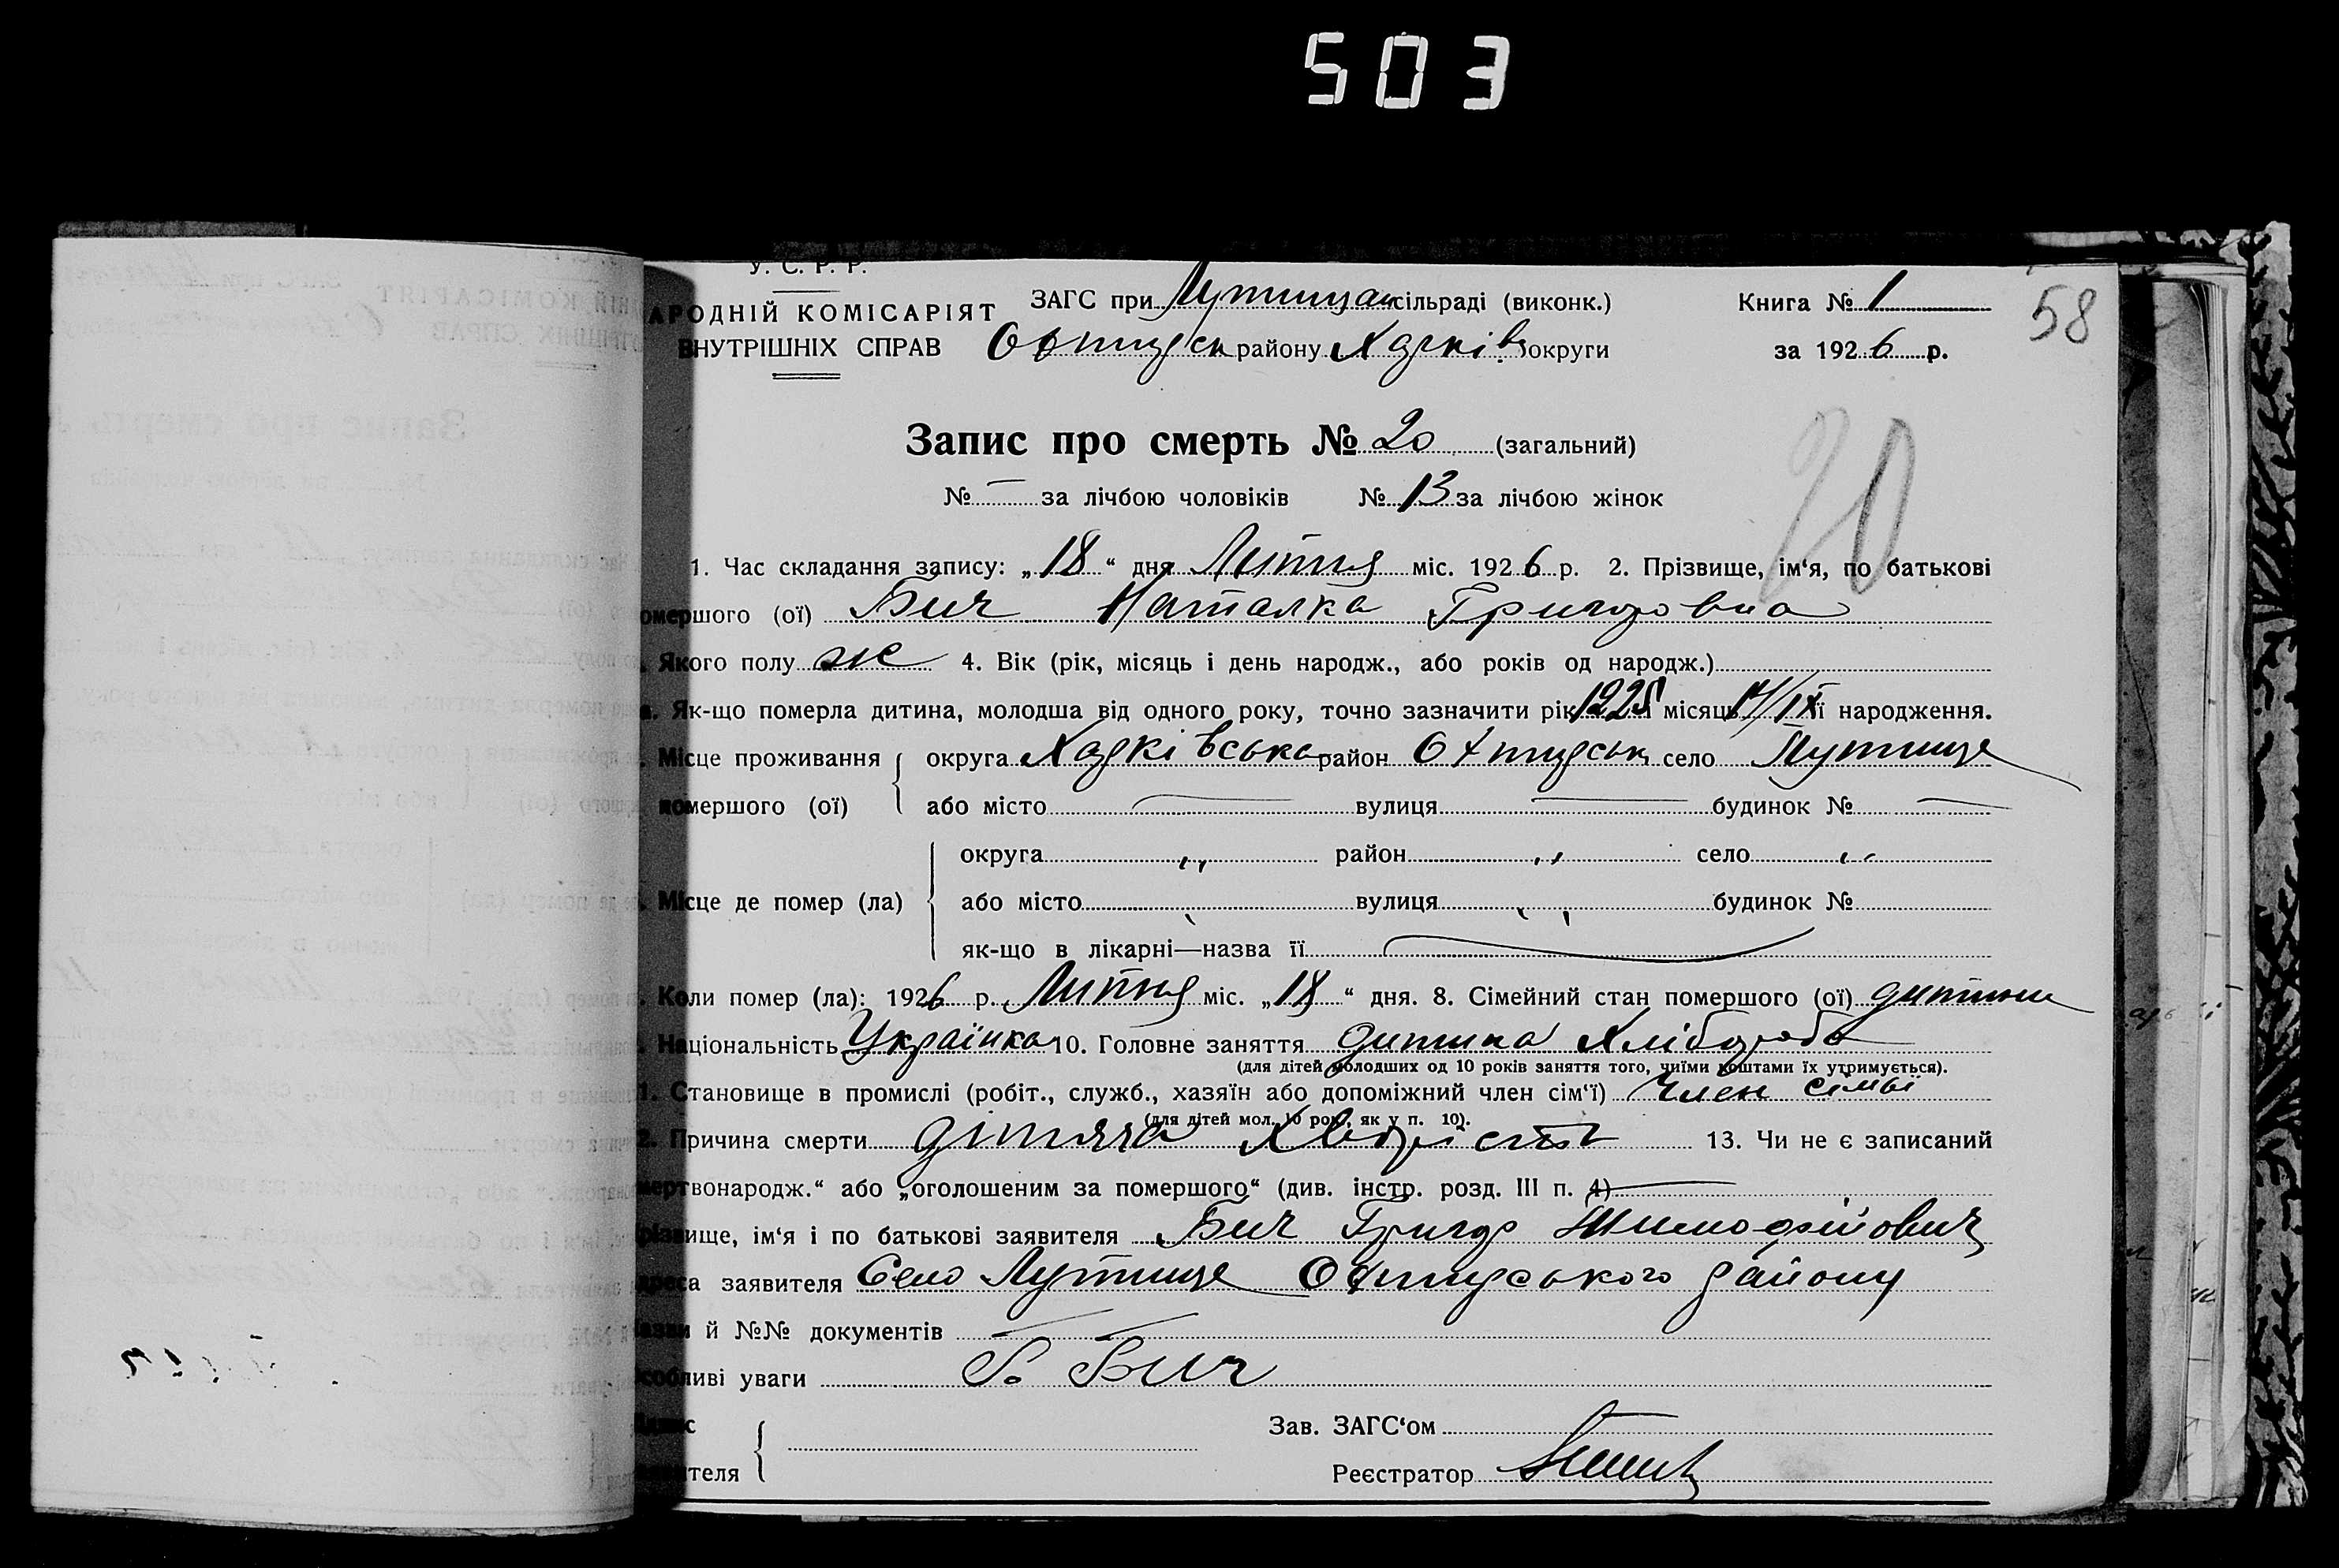 503
У. С. Р. Р.
АРОДНІЙ КОМІСАРІЯТ ЗАГС при Лутищан сільраді (виконк.) Книга № 1 58
ВНУТРІШНІХ СПРАВ Охтирськ району Харків округи за 1926 р.
Запис про смерть № 20 (загальний) 20
№ — за лічбою чоловіків № 13 за лічбою жінок
1. Час складання запису: „18“ дня Липня міс. 1926 р. 2. Прізвище, ім‘я, по батькові
омершого (ої) Бич Наталка Григоровна
Якого полу ж 4. Вік (рік, місяць і день народж., або років од народж.)
а. Як-що померла дитина, молодша від одного року, точно зазначити рік 1925 місяць /IX її народження.
Місце проживання округа Харківська район Охтирськ село Лутище
помершого (ої) або місто — вулиця — будинок № —
округа ,, район ,, село ,,
Місце де помер (ла) або місто вулиця будинок №
як-що в лікарні—назва її —
Коли помер (ла): 1926 р. Липня міс. „18“ дня. 8. Сімейний стан помершого (ої) дитина
Національність Українка 10. Головне заняття дитина Хлібороба
(для дітей молодших од 10 років заняття того, чиїми коштами їх утримується).
1. Становище в промислі (робіт., служб., хазяїн або допоміжний член сім‘ї) Член сімьї
(для дітей мол. 10 рок., як у п. 10).
2. Причина смерти дітяча 13. Чи не є записаний
мертвонародж.“ або „оголошеним за помершого“ (див. інстр. розд. III п. 4) —
різвище, ім‘я і по батькові заявителя Бич Григор Тимофійович
дреса заявителя Село Лутище Охтирського району
азви й №№ документів —
собливі уваги Г. Бич
ідпис Зав. ЗАГС‘ом —
вителя Реєстратор